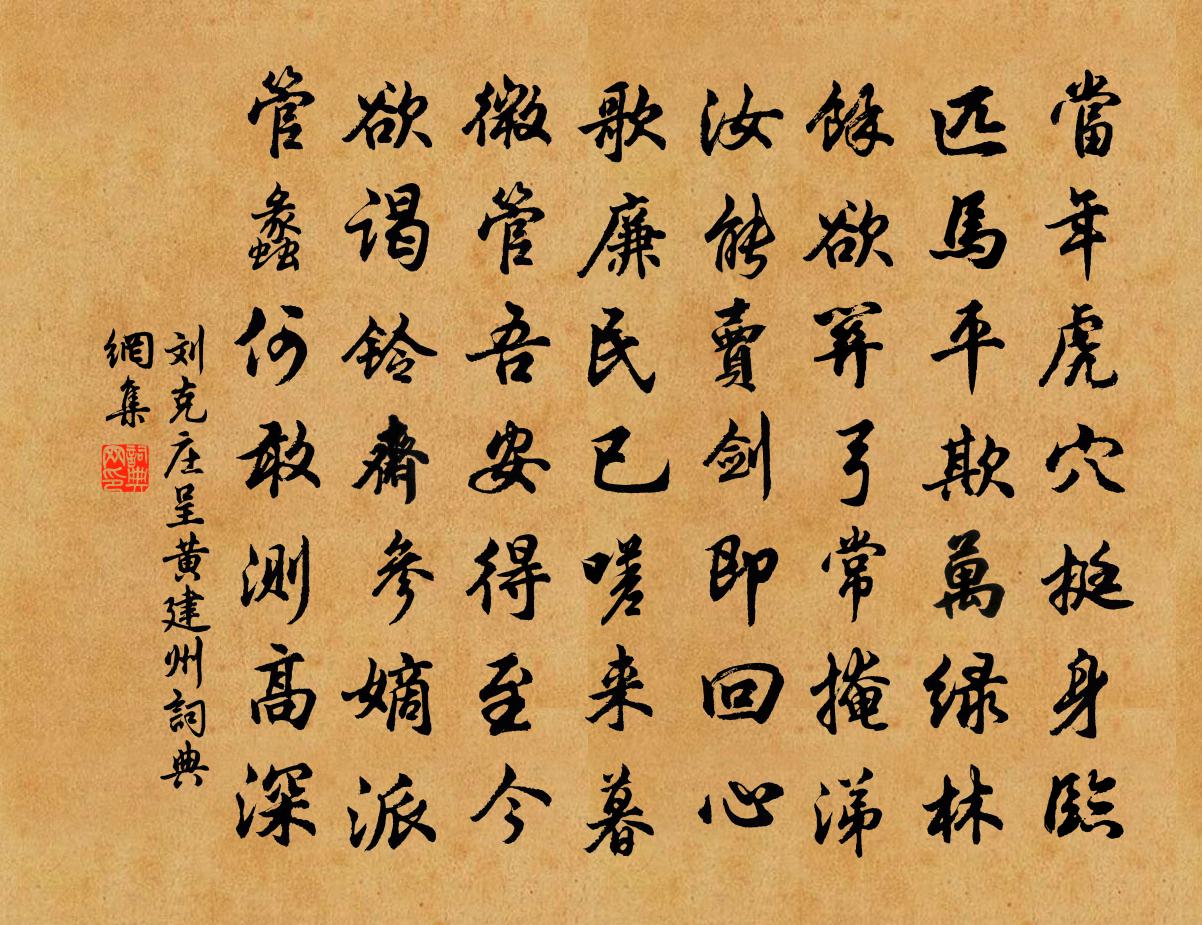 當年虎穴挺身臨
匹馬平欺萬緑林
餘欲弯弓常掩涕
汝能賣劍即回心
歌廉民已嗟来暮
微管吾安得至今
欲谒鈴齋參嫡派
管蠡何敢測高深
刘克庄呈黄建州詞典
網集
詞典網印